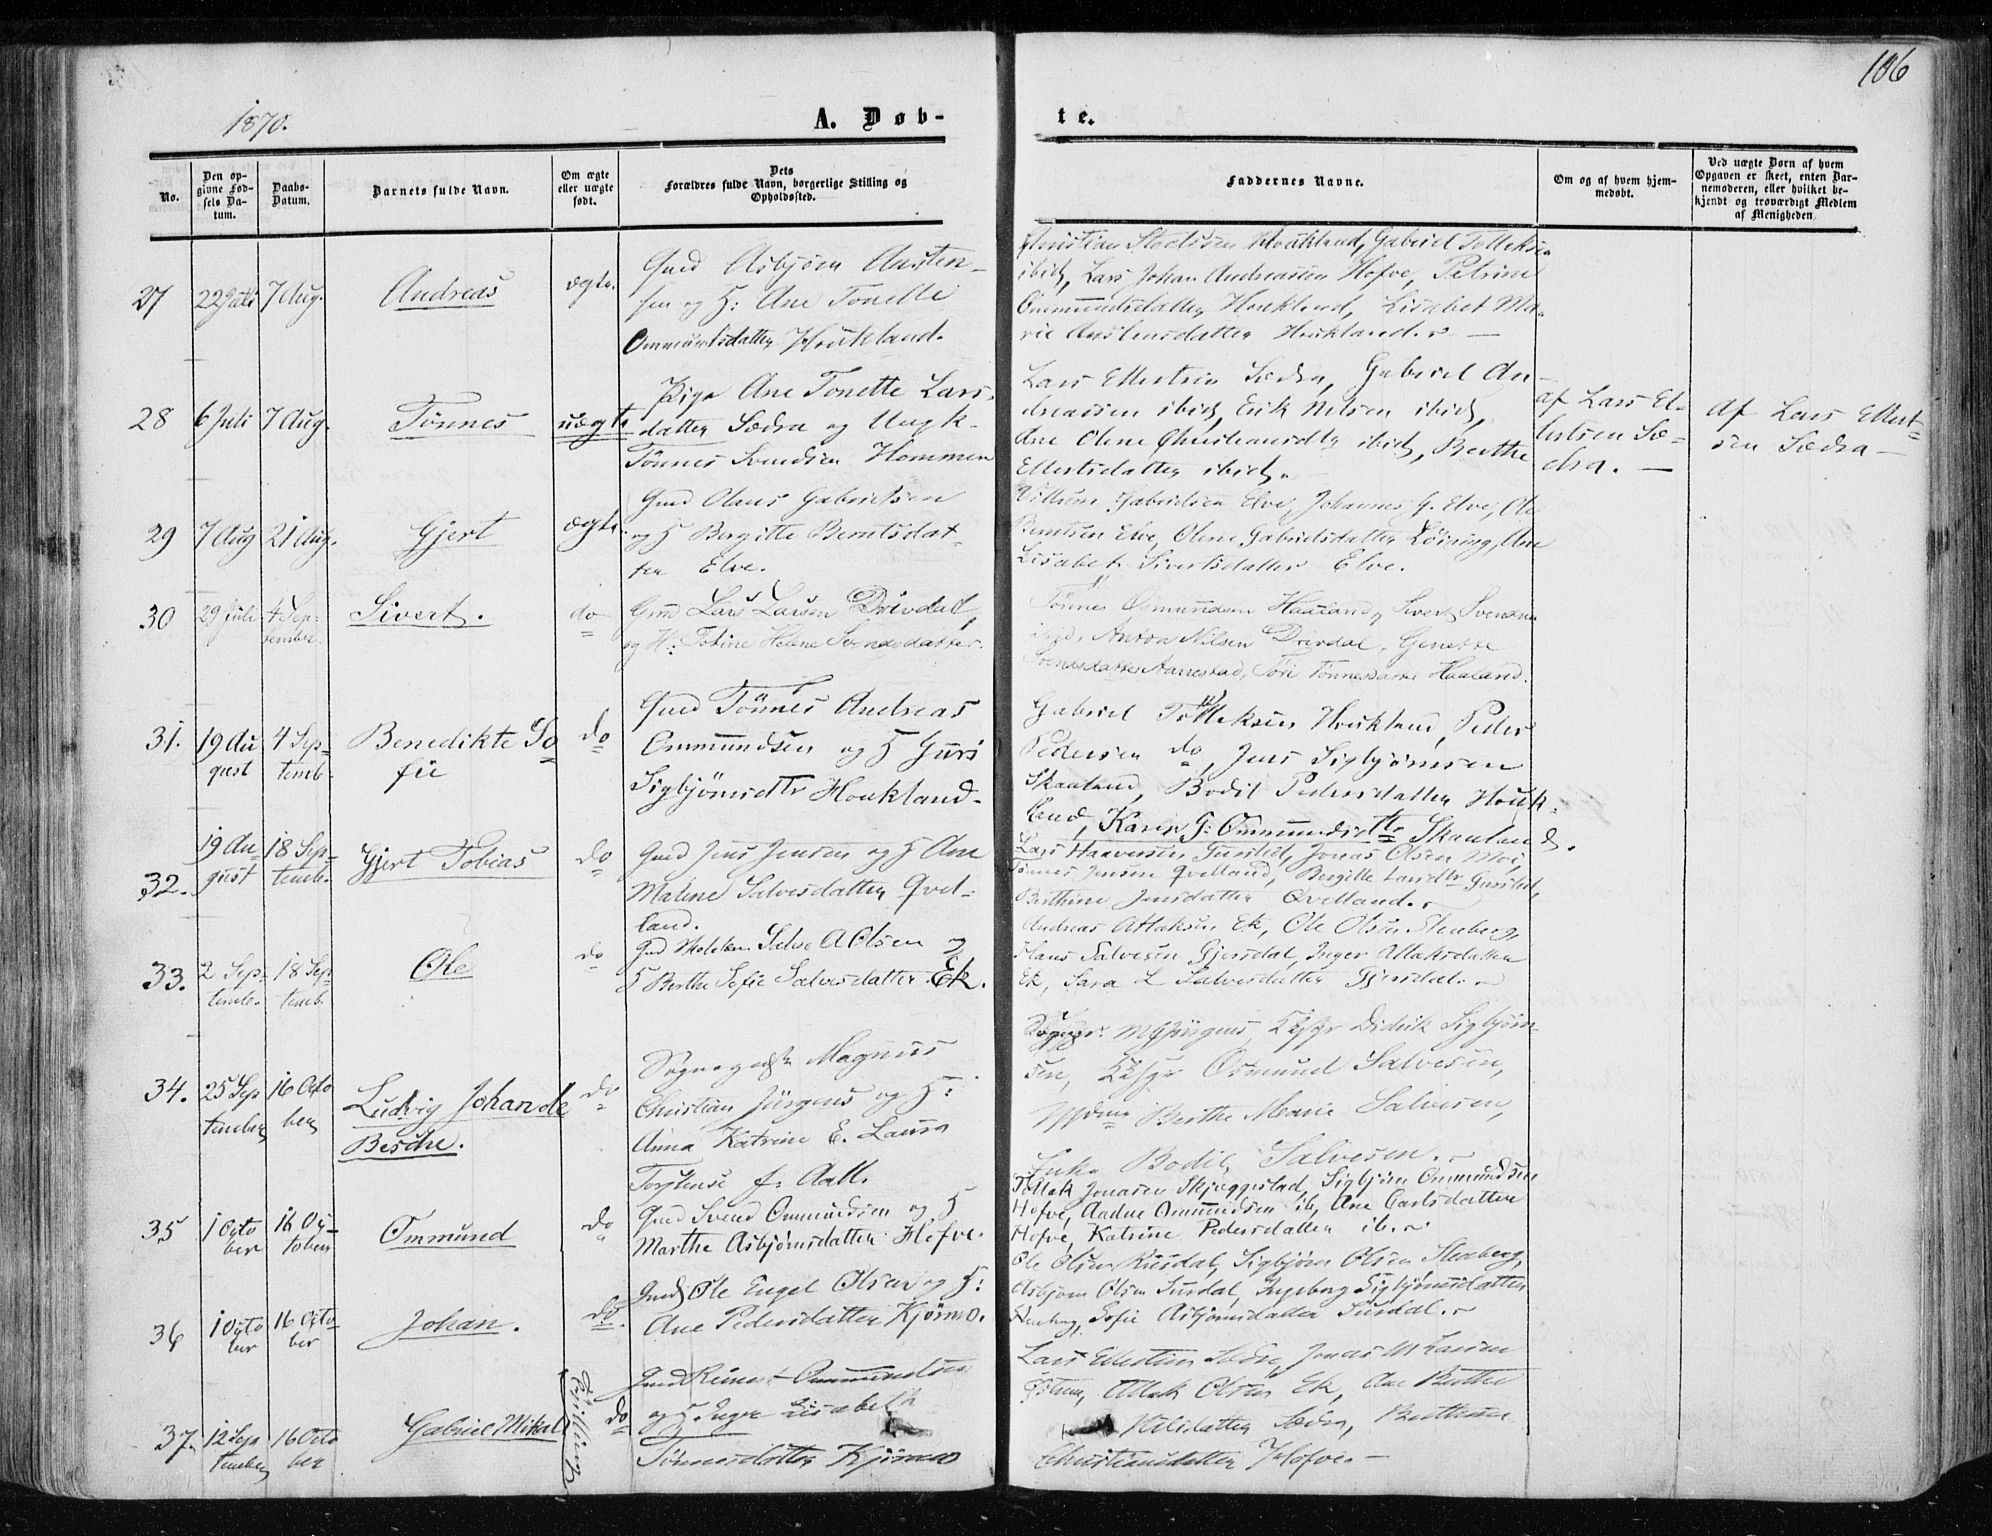 106
1870.
A. Døb-
te.
No.
Den op-
givne Fød-
sels Da-
tum.
Daabs-
Datum.
Barnets fulde Navn.
Om ægte
eller uægte
født.
Dets
Forældres fulde Navn, borgerlige Stilling og
Opholdssted.
Faddernes Navne.
Om og af hvem hjem-
medøbt.
Ved uægte Born af hvem
Opgaven er skeet, enten Bar-
nemoderen, eller hvilket be-
kjendt og troværdigt Medlem
af Menigheden.
27
22 Juli
7 Aug.
Andreas
ægte.
Gmd Asbjørn Austen-
sen og H: Ane Tonette
Ommundsdatter Houkland.
Houkland, Gabriel Tolleksen
ibid, Lars Johan Andreassen Hofve, Petrine
Ommundsdatter Houkland, Lisabet Ma-
rie Austensdatter Houkland.
28
6 Juli
7 Aug.
Tönnes
uægte
Pige Ane Tonette Lars-
datter Sædra og Ungk.
Tönnes Svendsen Hommen
Lars Ellertsen Sædra, Gabriel An-
dreassen ibid, Erik Nilsen ibid,
Ane Olene Christiansdtr ibid, Berthe
Ellertsdatter ibid.
af Lars El-
lertsen Sæ-
dra. —
Af Lars Ellert-
sen Sædra —
29
7 Aug
21 Aug.
Gjert
ægte.
Gmd Olaus Gabrielsen
og H Bergitte Berntsdat-
ter Elve.
Villum Gabrielsen Elve, Johannes G. Elve, Ole
Berntsen Elve, Olene Gabrielsdatter Löining, Ane
Lisabet Sivertsdatter Elve.
30
29 Juli
4 Sep-
tember.
Sivert.
do
Gmd Lars Larsen Drivdal,
og H: Tobine Helene Svendsdatter.
Tönnes Osmundsen Haaland, Sivert Svendsen
ibid, Anton Nilsen Drivdal, Genette
Svendsdatter Aarrestad, Töri Tönnesdatter Haaland.
31.
19 Au
gust
4 Sep-
temb.
Benedikte So
fie
do
Gmd Tönnes Andreas
Ommundsen og H Guri
Sigbjörnsdtr Houkland.
Gabriel Tolleksen Houkland, Peder
Pedersen do, Jens Sigbjörnsen
Skaaland, Bodil Pedersdatter Houk-
land, Karen G: Ommundsdtr Skaaland.
32.
19 Au-
gust
18 Sep-
temb.
Gjert Tobias
do
Gmd Jens Jensen og H Ane
Malene Salvesdatter Qvel-
land.
Lars Haaversen Gursled, Jonas Olsen Moi,
Tönnes Jensen Qvelland, Bergitte Larsdtr Gursled,
Berthine Jensdatter Qvelland.
33.
2 Sep-
temb.
18 Sep-
temb.
Ole
do
Salve A Olsen og
H Berthe Sofie Salvesdatter Ek.
Andreas Atlaksen Ek, Ole Olsen Stenberg,
Hans Salvesen Gjersdal, Inger Atlaksdatter
Ek, Sara L Salvesdatter Gjersdal.
34.
25 Sep
tember
16 Octo
ber
Ludvig Johan de
Besche.
do
Magnus
Christian Jürgens og H:
Anna Katrine E. Laura
f: Aall.
Didrik Sigbjörn-
sen, Osmund Salvesen,
Berthe Marie Salvesen,
Bodil Salvesen.
35
1 Octo
ber
16 Oc-
tober
Ommund
do
Gmd Svend Ommundsen og H
Marthe Asbjörnsdatter Hofve.
Tollak Jonasen Skjeggestad, Sigbjörn Ommundsen
Hofve, Aadne Ommundsen ib, Ane Carlsdatter
Hofve, Katrine Pedersdatter ib.
36
1 Octo
ber
16 Octo-
ber
Johan.
do.
Gmd Ole Engel Olsen og H:
Ane Pedersdatter Kjörmo.
Ole Olsen Rusdal, Sigbjörn Olsen Stenberg,
Asbjörn Olsen Susdal, Ingeborg Sigbjörnsdatter
Stenberg, Sofie Asbjörnsdatter Susdal.
37.
12 Sep
tember
16 Octo
ber
Gabriel Mikal
Tvilling
do
Gmd Reinert Ommundsen
og H Inger Lisabeth
Tönnesdatter Kjörmo
Lars Ellertsen Sædra, Jonas M Larsen
Atlak Olsen Ek, Ane Berthe
Nilsdatter Sædra, Berthine
Christiansdatter Hofve. —